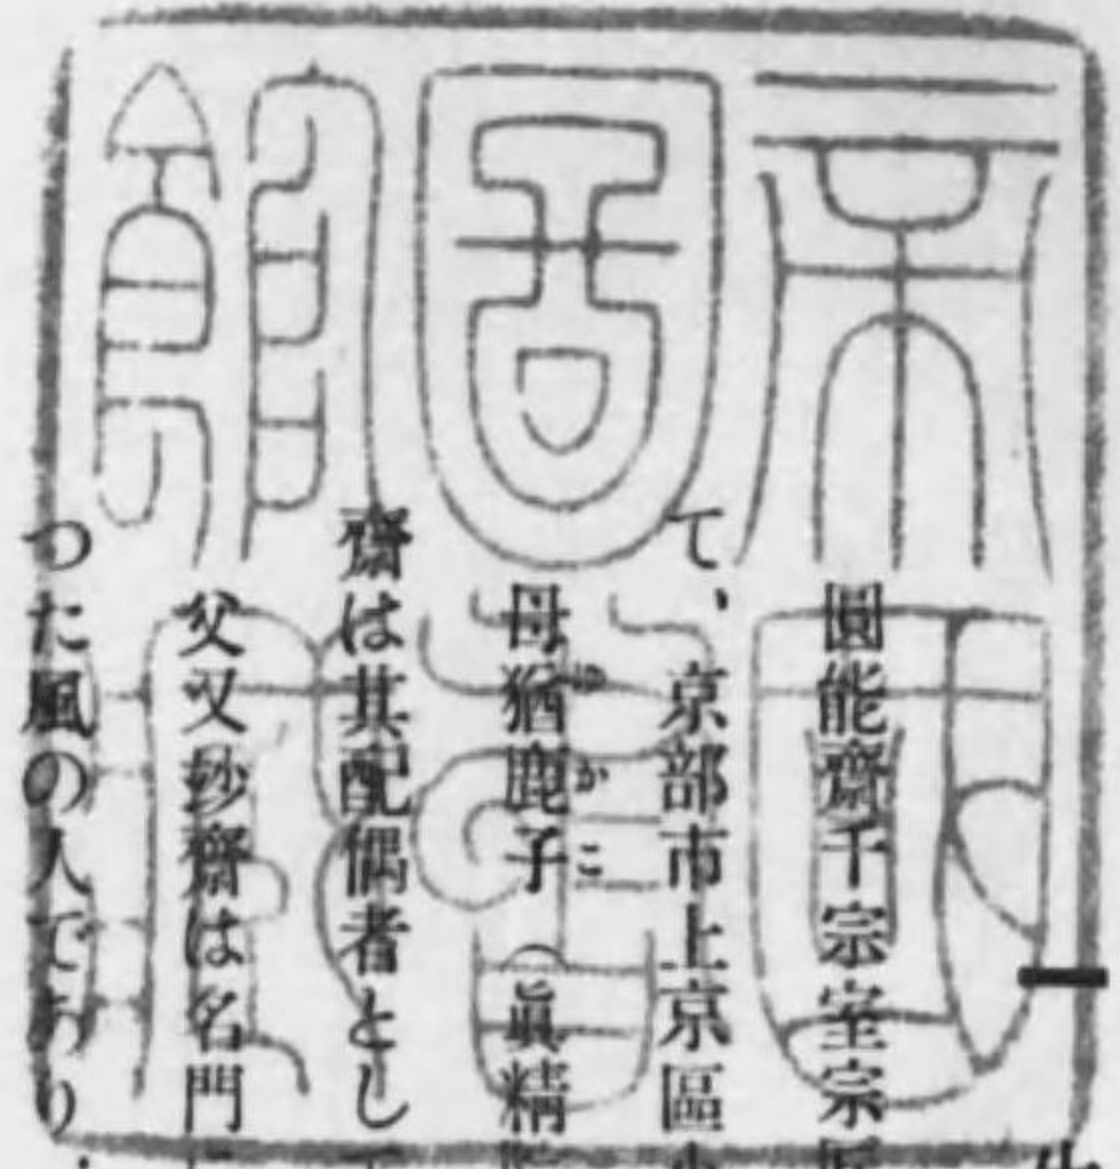 一
圓能齋千宗室宗
て、京部市上京區
母猶鹿子（眞精
齋は其配偶者とし
父又玅齋は名門
つた風の人であり
帝國圖書館藏